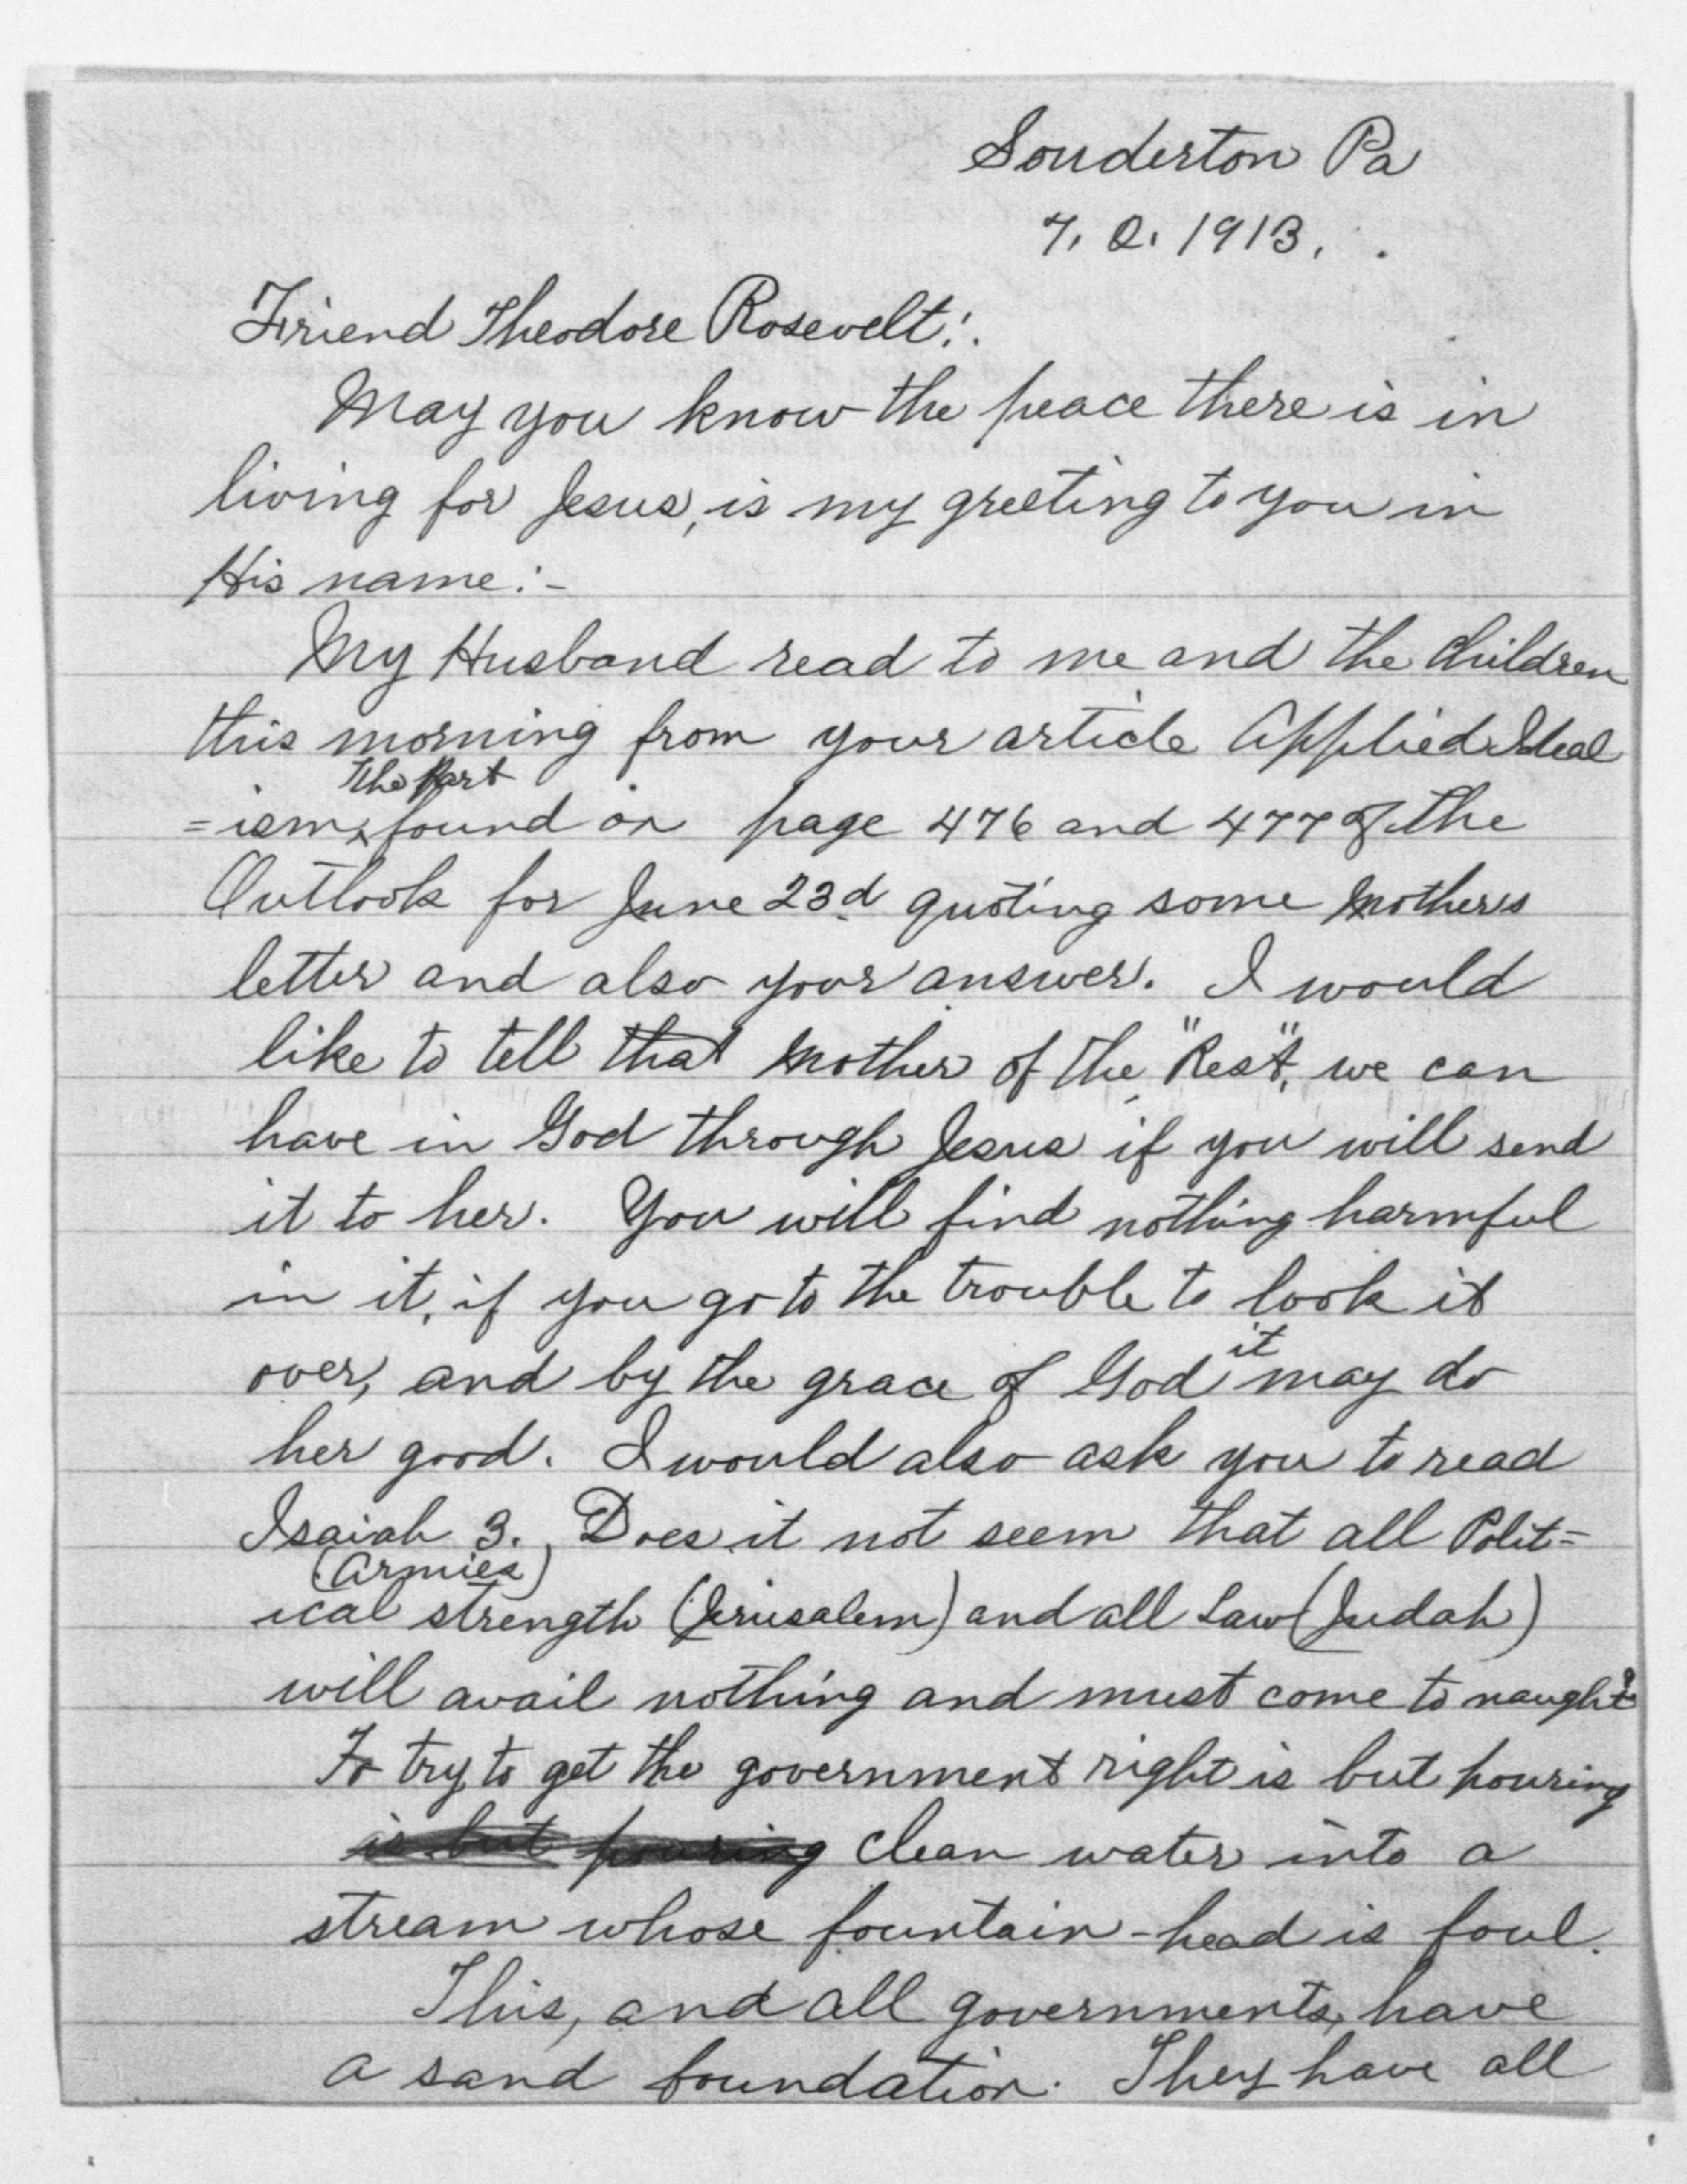 Souderton Pa
7. 2. 1913.
Friend Theodore Rosevelt:.
May you know the peace there is in
living for Jesus, is my greeting to you in
His name:-
My Husband read to me and the Children
this morning from your article Applied Ideal
The Part
=ism, found on page 476 and 477 of the
Outlook for June 23d quoting some Mothers
letter and also your answer. I would
like to tell that Mother of the "Rest", we can
have in God through Jesus if you will send
it to her. You will find nothing harmful
in it, if you go to the trouble to look it
it
over, and by the grace of God may do
her good. I would also ask you to read
Isaiah 3. Does it not seem that all Polit=
(Armies)
ical strength (Jerusalem) and all Law (Judah)
will avail nothing and must come to naught?
To try to get the government right is but pouring
is but pouring clean water into a
stream whose fountain-head is foul.
This, and all governments, have
a sand foundation. They have all